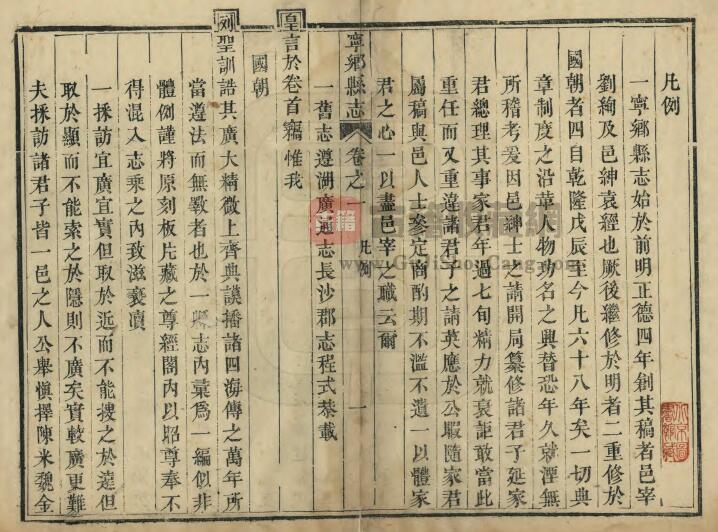 凡例
一寧鄉縣志始於前明正德四年創其稿者邑宰
劉絢及邑紳袁經也厥後繼修於明者二重修於
國朝者四自乾隆戊辰至今凡六十八年矣一切典
章制度之沿革人物功名之興替恐年久就湮無
所稽考爰因邑紳士之請開局纂修諸君子延家
君總理其事家君年過七旬精力就衰詎敢當此
重任而又重違諸君子之請英應於公暇隨家君
屬稿與邑人士參定商酌期不濫不遺一以體家
君之心一以盡邑宰之職云爾
寧鄉縣志 卷之一 凡例 一
一舊志遵湖廣通志長沙郡志程式恭載
皇言於卷首竊惟我
國朝
列聖訓誥其廣大精微上齊典謨播諸四海傳之萬年所
當遵法而無斁者也於一縣志內彙爲一編似非
體例謹將原刻板片藏之尊經閣內以昭尊奉不
得混入志乘之內致滋褻瀆
一採訪宜廣宜實但取於近而不能搜之於遠但
取於顯而不能索之於隱則不廣矣實較廣更難
夫採訪諸君子皆一邑之人公舉愼擇陳米魏金
古籍收藏網
www.GuJiShouCang.com